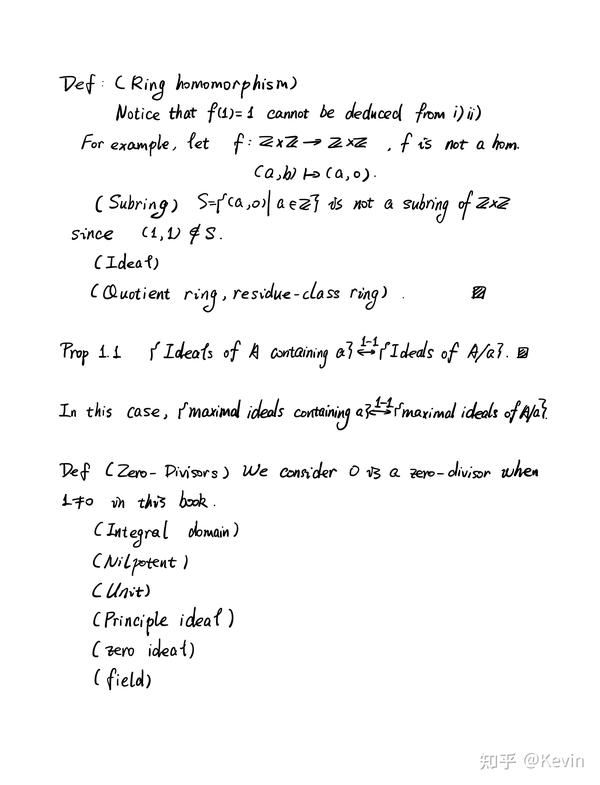 Def: (Ring homomorphism)
Notice that f(1)=1 cannot be deduced from i) ii)
For example, let f: ℤ×ℤ → ℤ×ℤ , f is not a hom.
(a,b) ↦ (a,0).
(Subring) S={(a,0)| a∈ℤ} is not a subring of ℤ×ℤ
since (1,1) ∉ S.
(Ideal)
(Quotient ring, residue-class ring) . ▨
Prop 1.1 {Ideals of A containing a} ↔^{1-1} {Ideals of A/a}. ▨
In this case, {maximal ideals containing a} ↔^{1-1} {maximal ideals of A/a}.
Def (Zero-Divisors) We consider 0 is a zero-divisor when
1≠0 in this book.
(Integral domain)
(Nilpotent)
(Unit)
(Principle ideal)
(zero ideal)
(field)
知乎 @Kevin